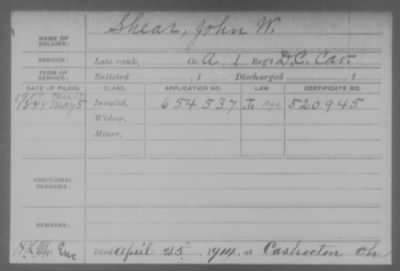 NAME OF SOLDIER: Shear, John W.
SERVICE: Late rank, Co. A, 1 Reg't D.C. Cav.
TERM OF SERVICE: Enlisted , 1 Discharged , 1
DATE OF FILING. CLASS. APPLICATION NO. LAW. CERTIFICATE NO.
1888 May 5 Invalid, 654537 520945
Widow,
Minor,
ADDITIONAL SERVICES:
REMARKS:
Died April 25, 1914, at Coshocton Oh